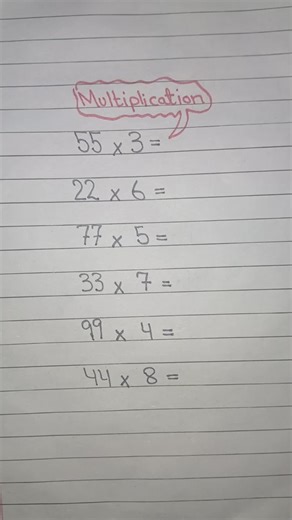 Multiplication
55 x 3 =
22 x 6 =
77 x 5 =
33 x 7 =
99 x 4 =
44 x 8 =